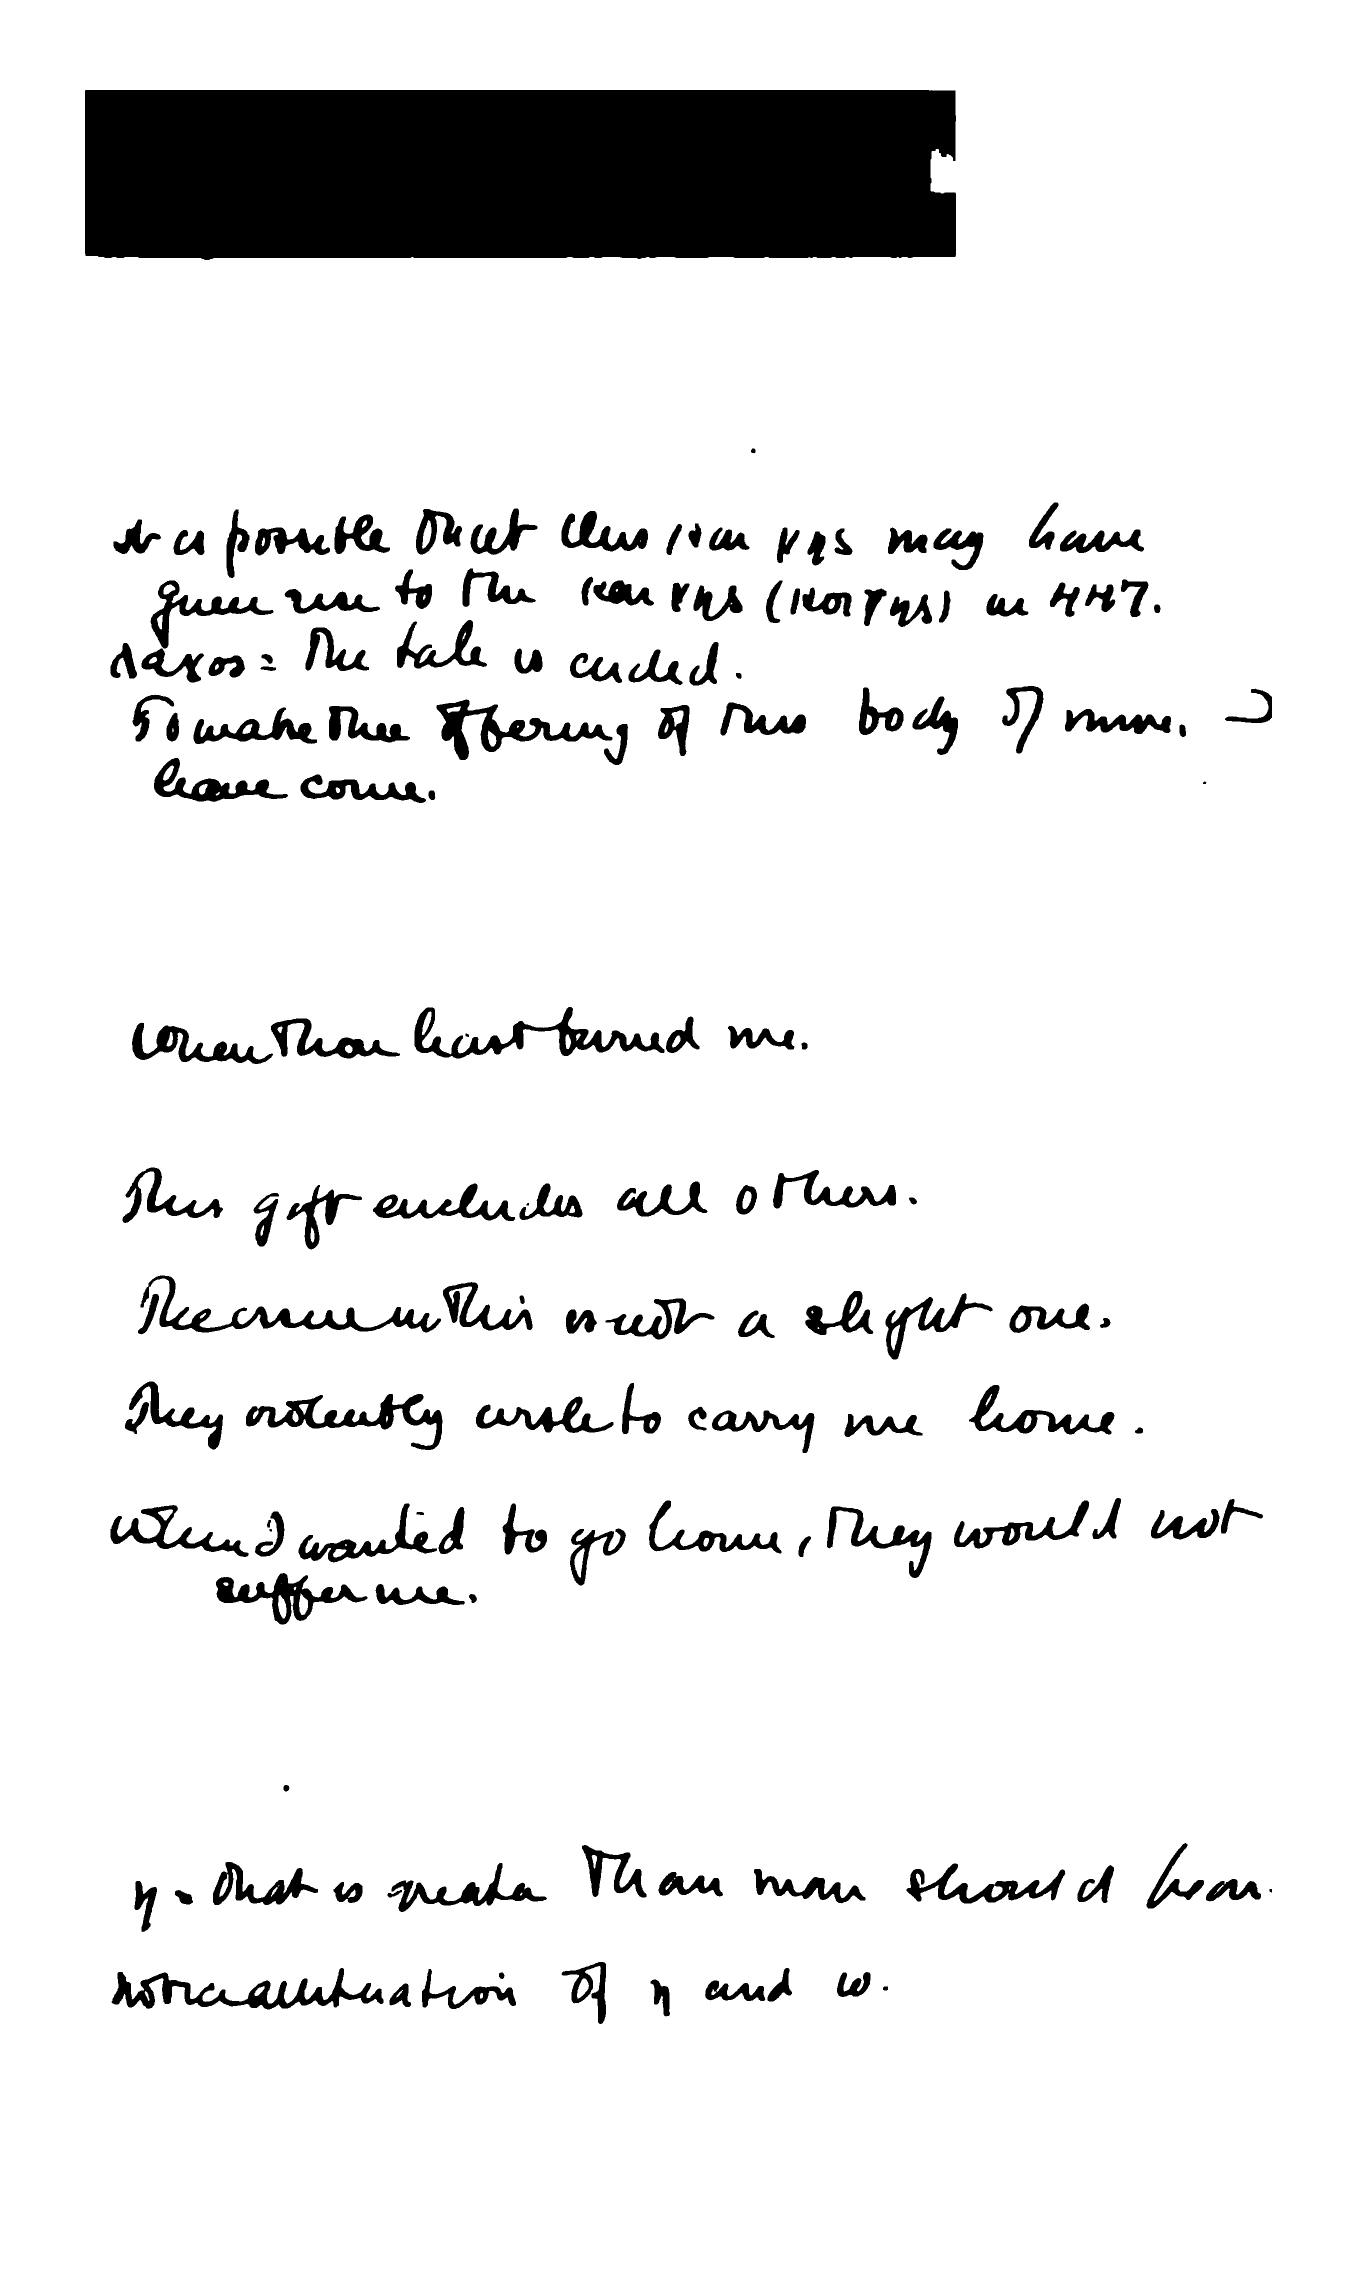 it is possible that this και γης may have
given rise to the και γης (κοτ γης) in 447.
λαχος = The tale is ended.
To make thee offering of this body of mine. I
have come.
When thou hast buried me.
This gift excludes all others.
The crime in this is not a slight one.
They violently wish to carry me home.
When I wanted to go home, they would not
suffer me.
η = that is greater than man should hear.
Note accentuation of η and ω.